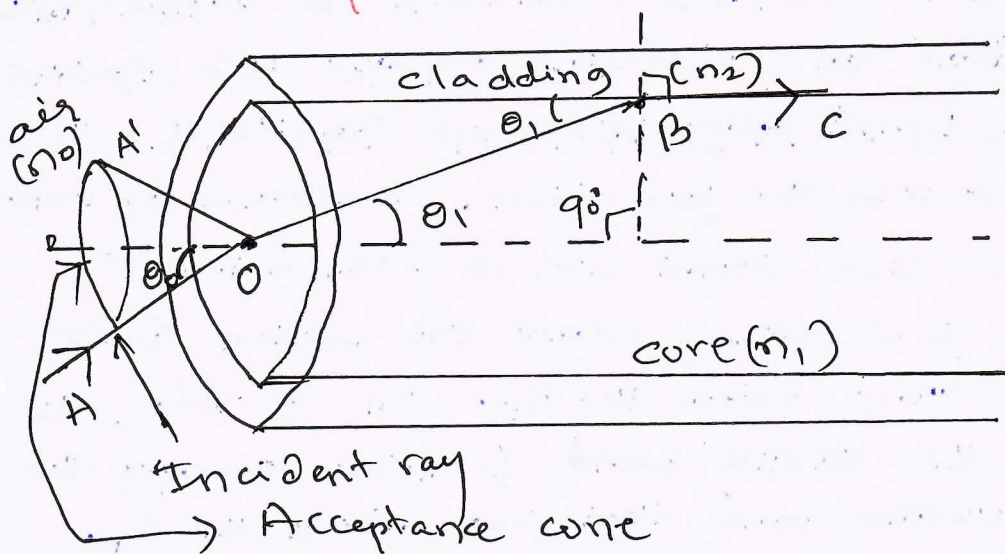 cladding (n2)
air
(n0)
A'
θ1
B
C
θ1
90°
θ0
O
core (n1)
A
Incident ray
Acceptance cone